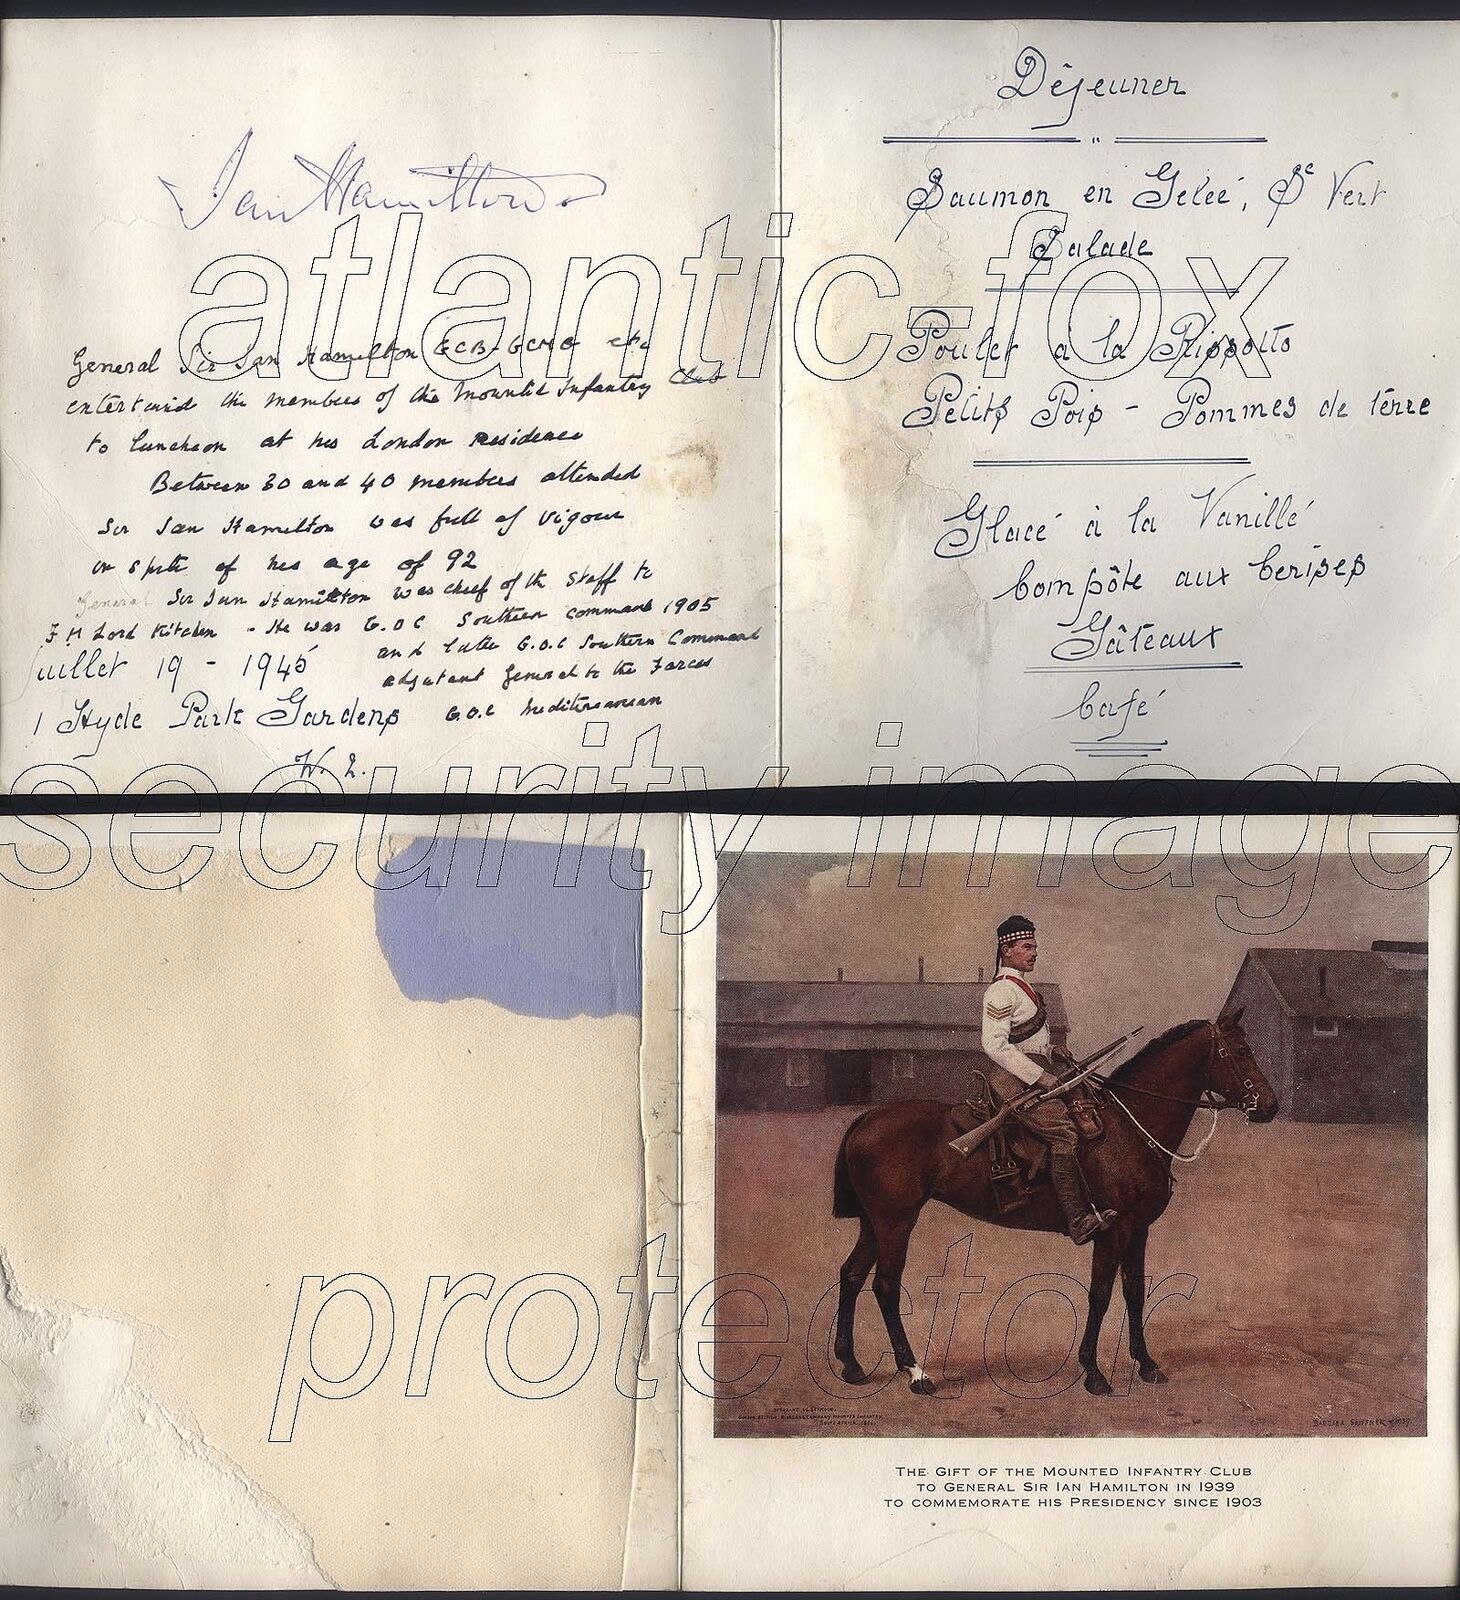 Ian Hamilton
General Sir Ian Hamilton GCB. GCMG etc
entertained the members of the Mounted Infantry Club
to luncheon at his London residence
Between 30 and 40 members attended
Sir Ian Hamilton was full of vigour
in spite of his age of 92
General Sir Ian Hamilton was chief of the staff to
F M Lord Kitchen - He was G.O.C Southern Command 1905
and later G.O.C Southern Command
adjutant General to the Forces
G.O.C Mediterranean
Juillet 19 - 1945
1 Hyde Park Gardens
W. 2.
Déjeuner
"
Saumon en Gelée, Sce Vert
Salade
Poulet à la Rissotto
Petits Pois - Pommes de térre
Glacé à la Vanillé
Compôte aux Cerises
Gâteaux
Café
atlantic-fox
security image
protector
SOUTH AFRICA
THE GIFT OF THE MOUNTED INFANTRY CLUB
TO GENERAL SIR IAN HAMILTON IN 1939
TO COMMEMORATE HIS PRESIDENCY SINCE 1903